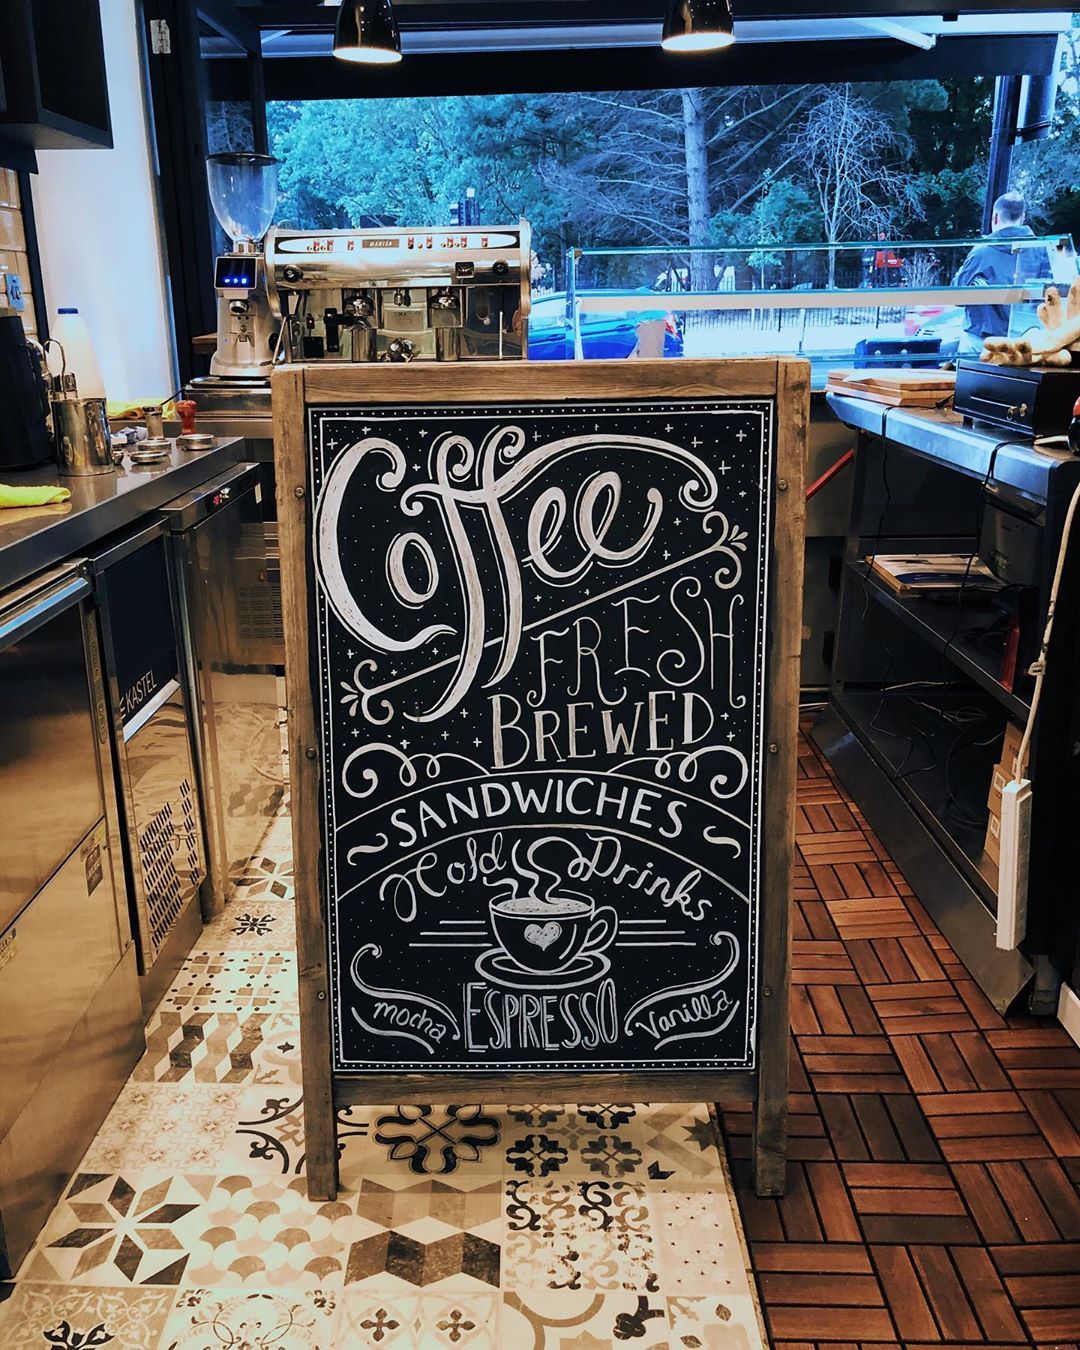 MARISA
Coffee
FRESH
BREWED
SANDWICHES
Cold Drinks
mocha ESPRESSO Vanilla
KASTEL